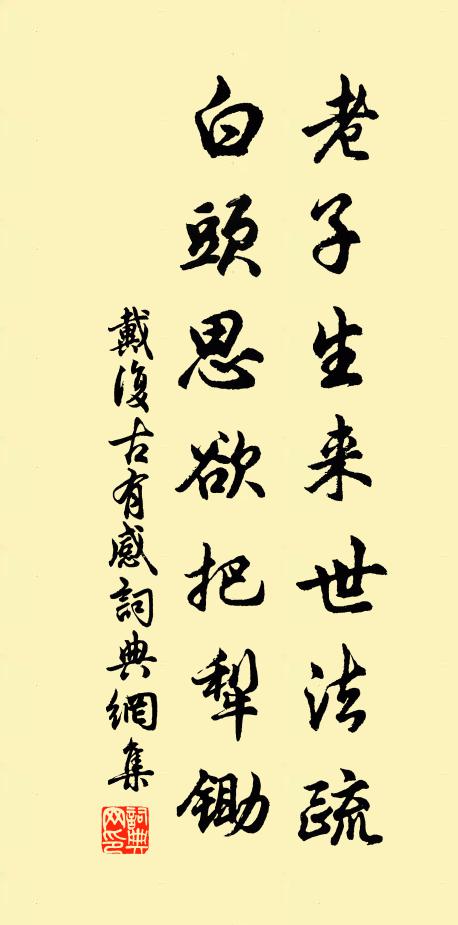 老子生来世法疏
白頭思欲把犁鋤
戴復古有感詞典網集
詞典網印